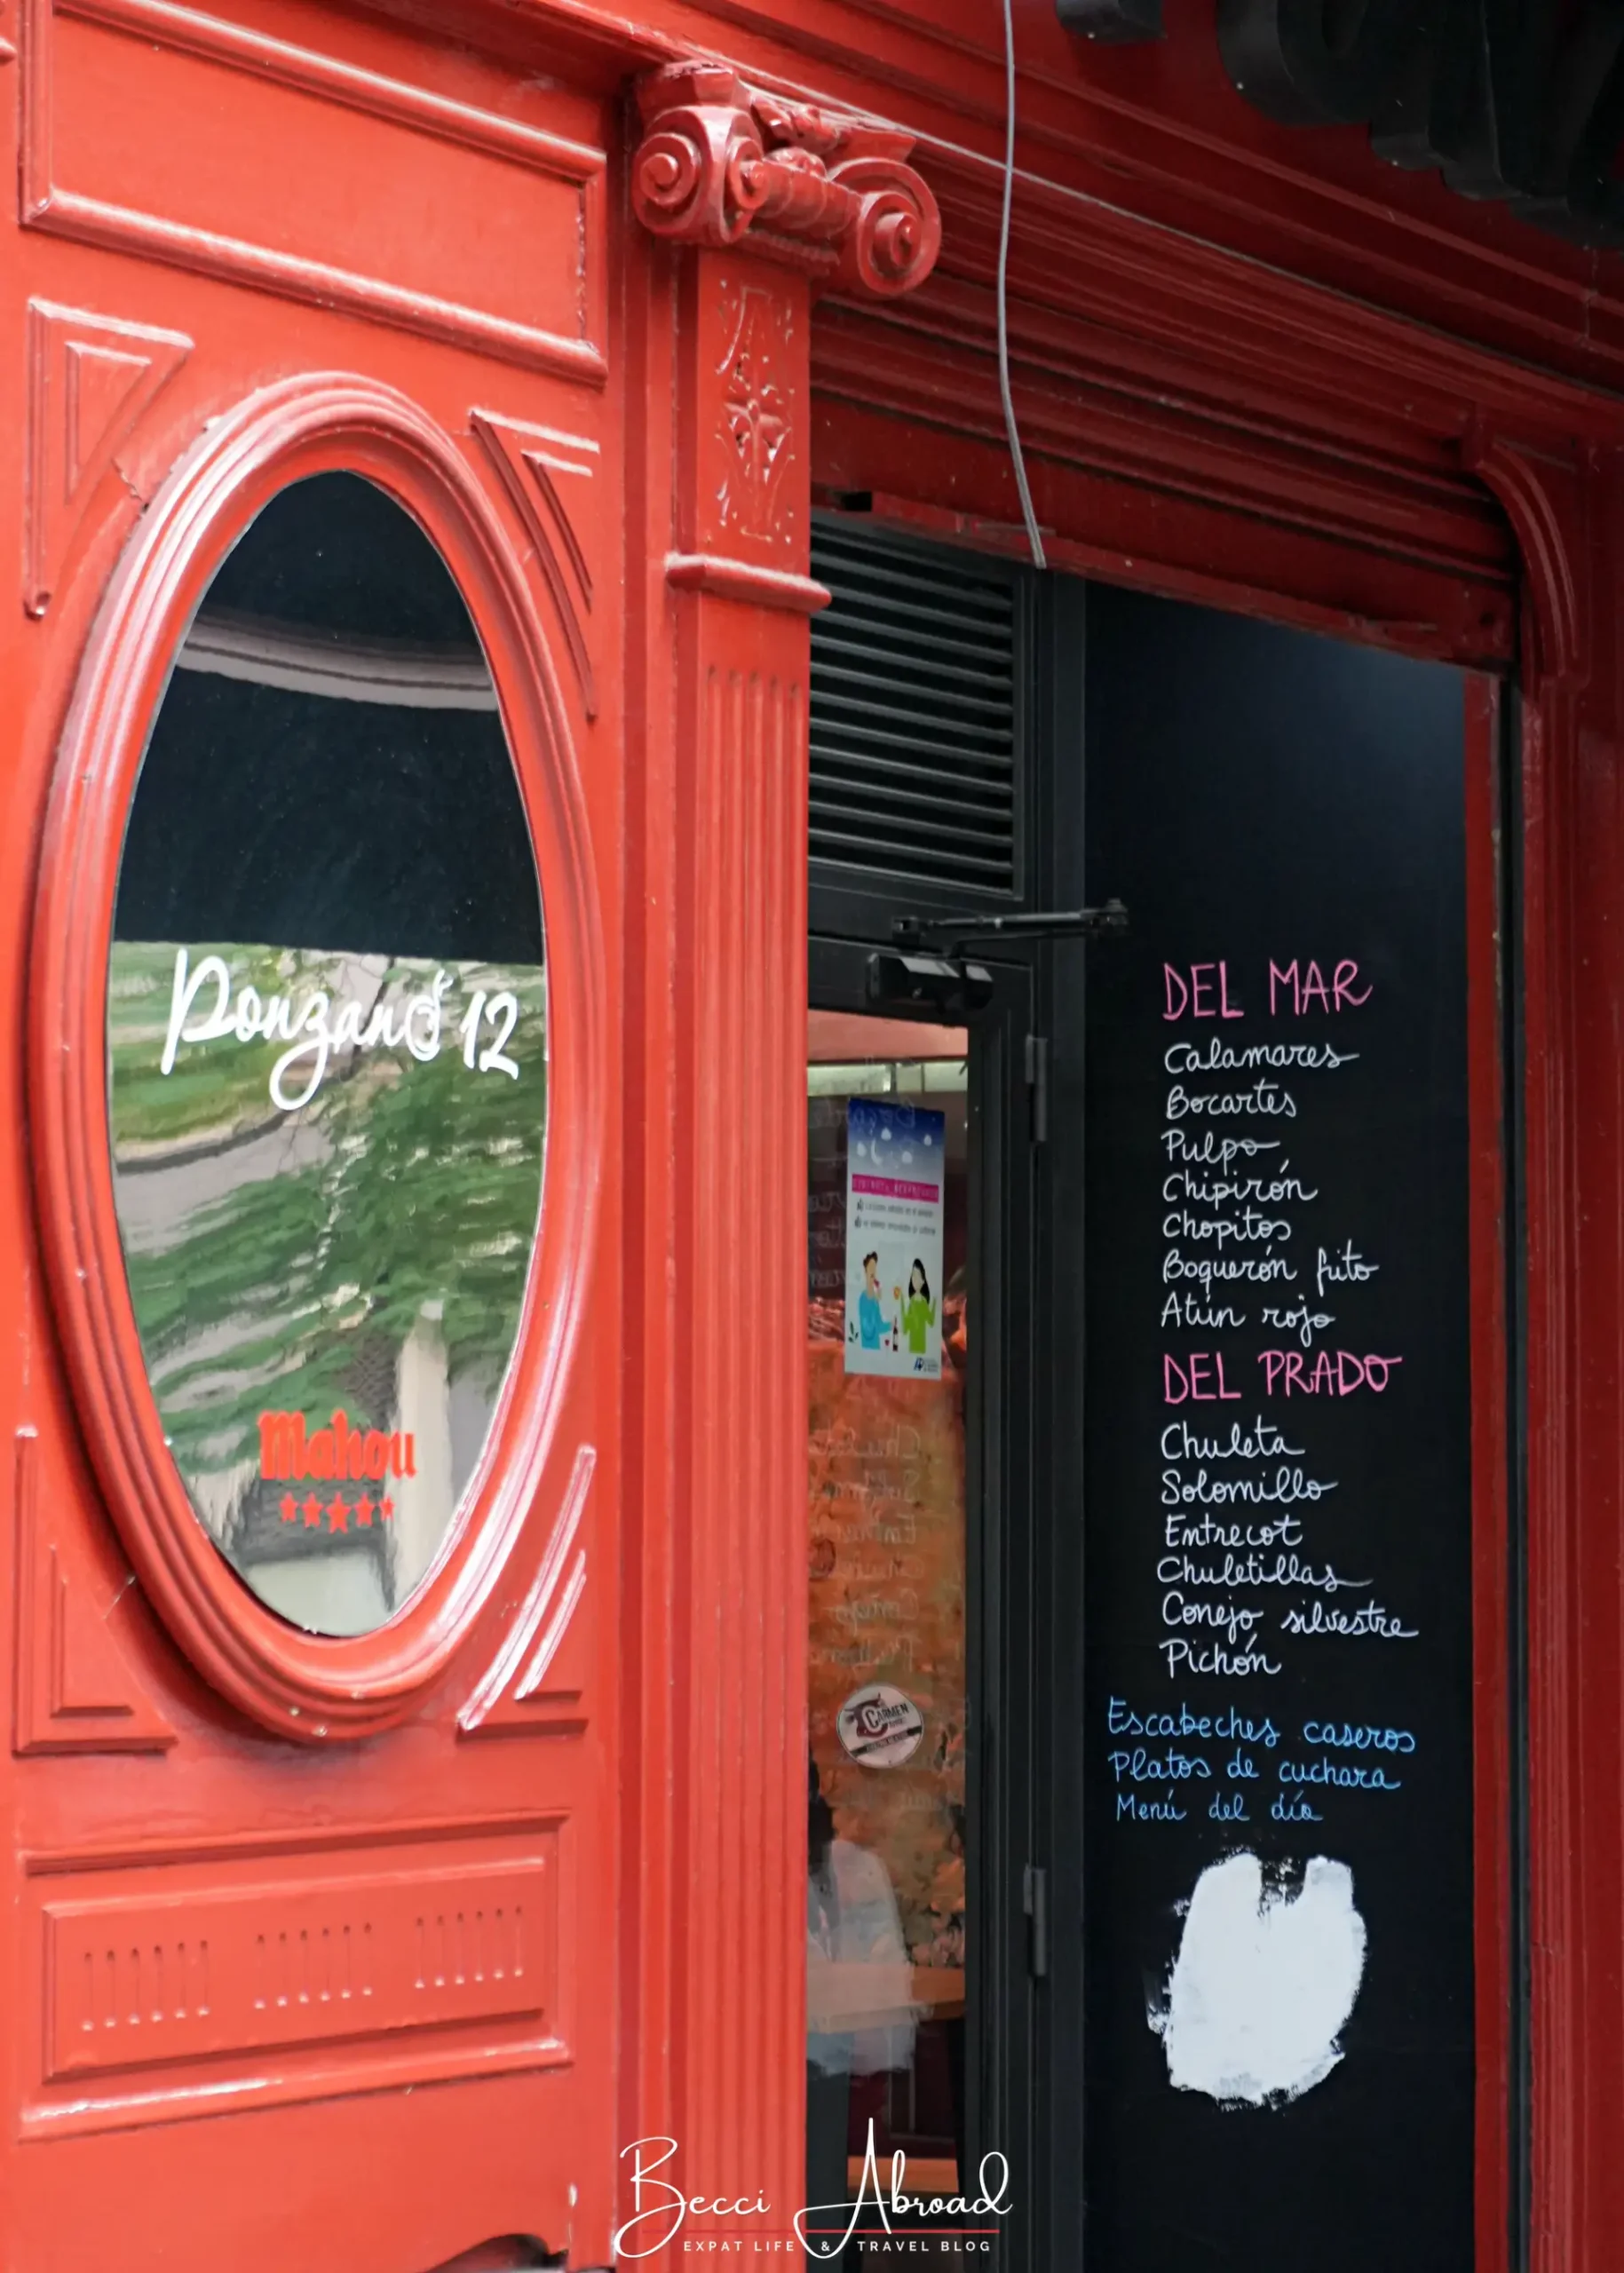 Ponzano 12
Mahou
DEL MAR
Calamares
Bocartes
Pulpo
Chipirón
Chopitos
Boquerón frito
Atún rojo
DEL PRADO
Chuleta
Solomillo
Entrecot
Chuletillas
Conejo silvestre
Pichón
Escabeches caseros
Platos de cuchara
Menú del día
CARMEN
Becci Abroad
EXPAT LIFE & TRAVEL BLOG